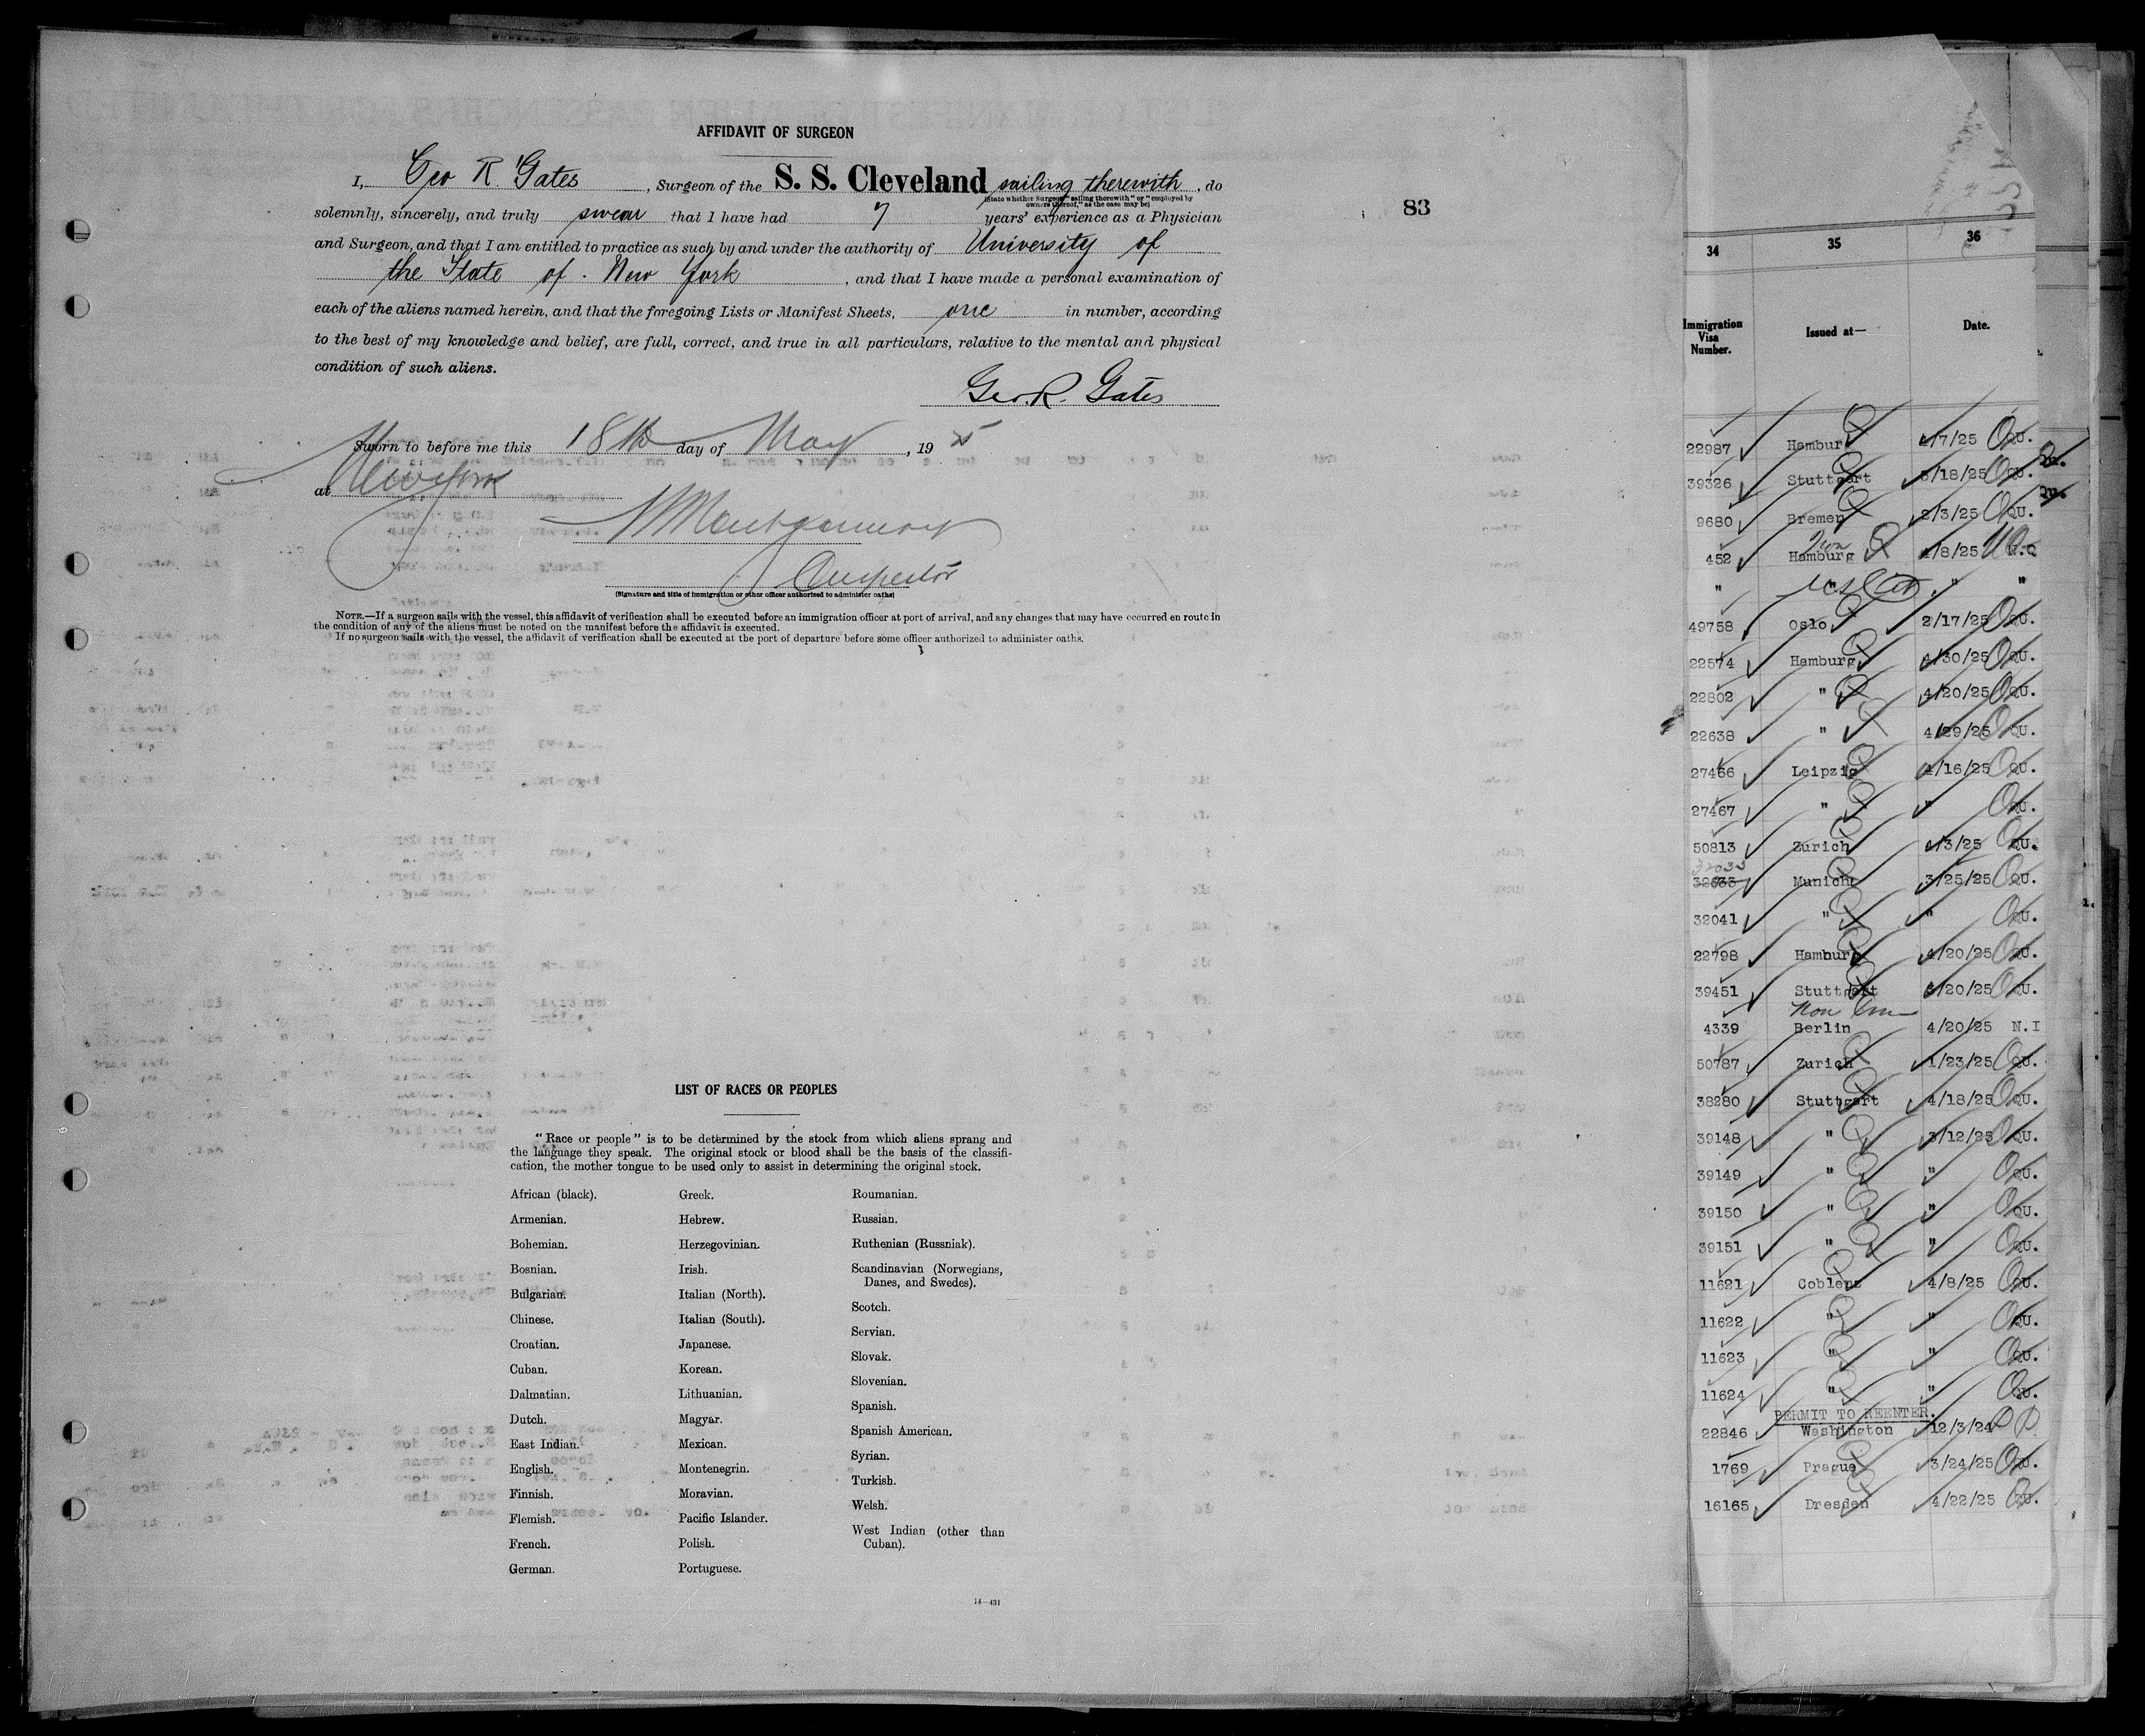 AFFIDAVIT OF SURGEON
I, Geo R. Gates, Surgeon of the S. S. Cleveland sailing therewith, do
(State whether Surgeon "sailing therewith" or "employed by
owners thereof," as the case may be)
solemnly, sincerely, and truly swear that I have had 7 years' experience as a Physician
83
and Surgeon, and that I am entitled to practice as such by and under the authority of University of
the State of New York, and that I have made a personal examination of
each of the aliens named herein, and that the foregoing Lists or Manifest Sheets, one in number, according
to the best of my knowledge and belief, are full, correct, and true in all particulars, relative to the mental and physical
condition of such aliens.
Geo. R. Gates
Sworn to before me this 18th day of May, 1925
at New York
Montgomery
Inspector
(Signature and title of immigration or other officer authorized to administer oaths)
NOTE.—If a surgeon sails with the vessel, this affidavit of verification shall be executed before an immigration officer at port of arrival, and any changes that may have occurred en route in
the condition of any of the aliens must be noted on the manifest before the affidavit is executed.
If no surgeon sails with the vessel, the affidavit of verification shall be executed at the port of departure before some officer authorized to administer oaths.
LIST OF RACES OR PEOPLES
"Race or people" is to be determined by the stock from which aliens sprang and
the language they speak. The original stock or blood shall be the basis of the classifi-
cation, the mother tongue to be used only to assist in determining the original stock.
African (black).
Armenian.
Bohemian.
Bosnian.
Bulgarian.
Chinese.
Croatian.
Cuban.
Dalmatian.
Dutch.
East Indian.
English.
Finnish.
Flemish.
French.
German.
Greek.
Hebrew.
Herzegovinian.
Irish.
Italian (North).
Italian (South).
Japanese.
Korean.
Lithuanian.
Magyar.
Mexican.
Montenegrin.
Moravian.
Pacific Islander.
Polish.
Portuguese.
Roumanian.
Russian.
Ruthenian (Russniak).
Scandinavian (Norwegians,
Danes, and Swedes).
Scotch.
Servian.
Slovak.
Slovenian.
Spanish.
Spanish American.
Syrian.
Turkish.
Welsh.
West Indian (other than
Cuban).
14—431
34 35 36
Immigration Visa Number. Issued at— Date.
22987 Hamburg 4/7/25 QU.
39326 Stuttgart 5/18/25 QU.
9680 Bremen 2/3/25 QU.
Non
452 Hamburg 4/8/25 N.Q
" " " "
49758 Oslo 2/17/25 QU.
22574 Hamburg 4/30/25 QU.
22802 " 4/20/25 QU.
22638 " 4/29/25 QU.
27466 Leipzig 4/16/25 QU.
27467 " " QU.
50813 Zurich 4/3/25 QU.
32033
Munich 3/25/25 QU.
32041 " " QU.
22798 Hamburg 4/20/25 QU.
39451 Stuttgart 3/20/25 QU.
Non Imm
4339 Berlin 4/20/25 N.I
50787 Zurich 1/23/25 QU.
38280 Stuttgart 4/18/25 QU.
39148 " 3/12/25 QU.
39149 " " QU.
39150 " " QU.
39151 " " QU.
11621 Coblenz 4/8/25 QU.
11622 " " QU.
11623 " " QU.
11624 " " QU.
PERMIT TO REENTER.
22846 Washington 12/3/24
1769 Prague 3/24/25 QU.
16165 Dresden 4/22/25 QU.